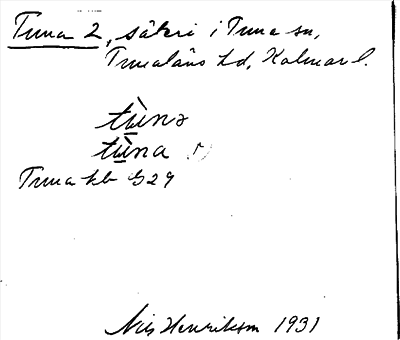 Tuna 2, säteri i Tuna sn,
Tunaläns hd, Kalmar l.
tùnə
tùna
Tuna kb G 29
Nils Henriksson 1931